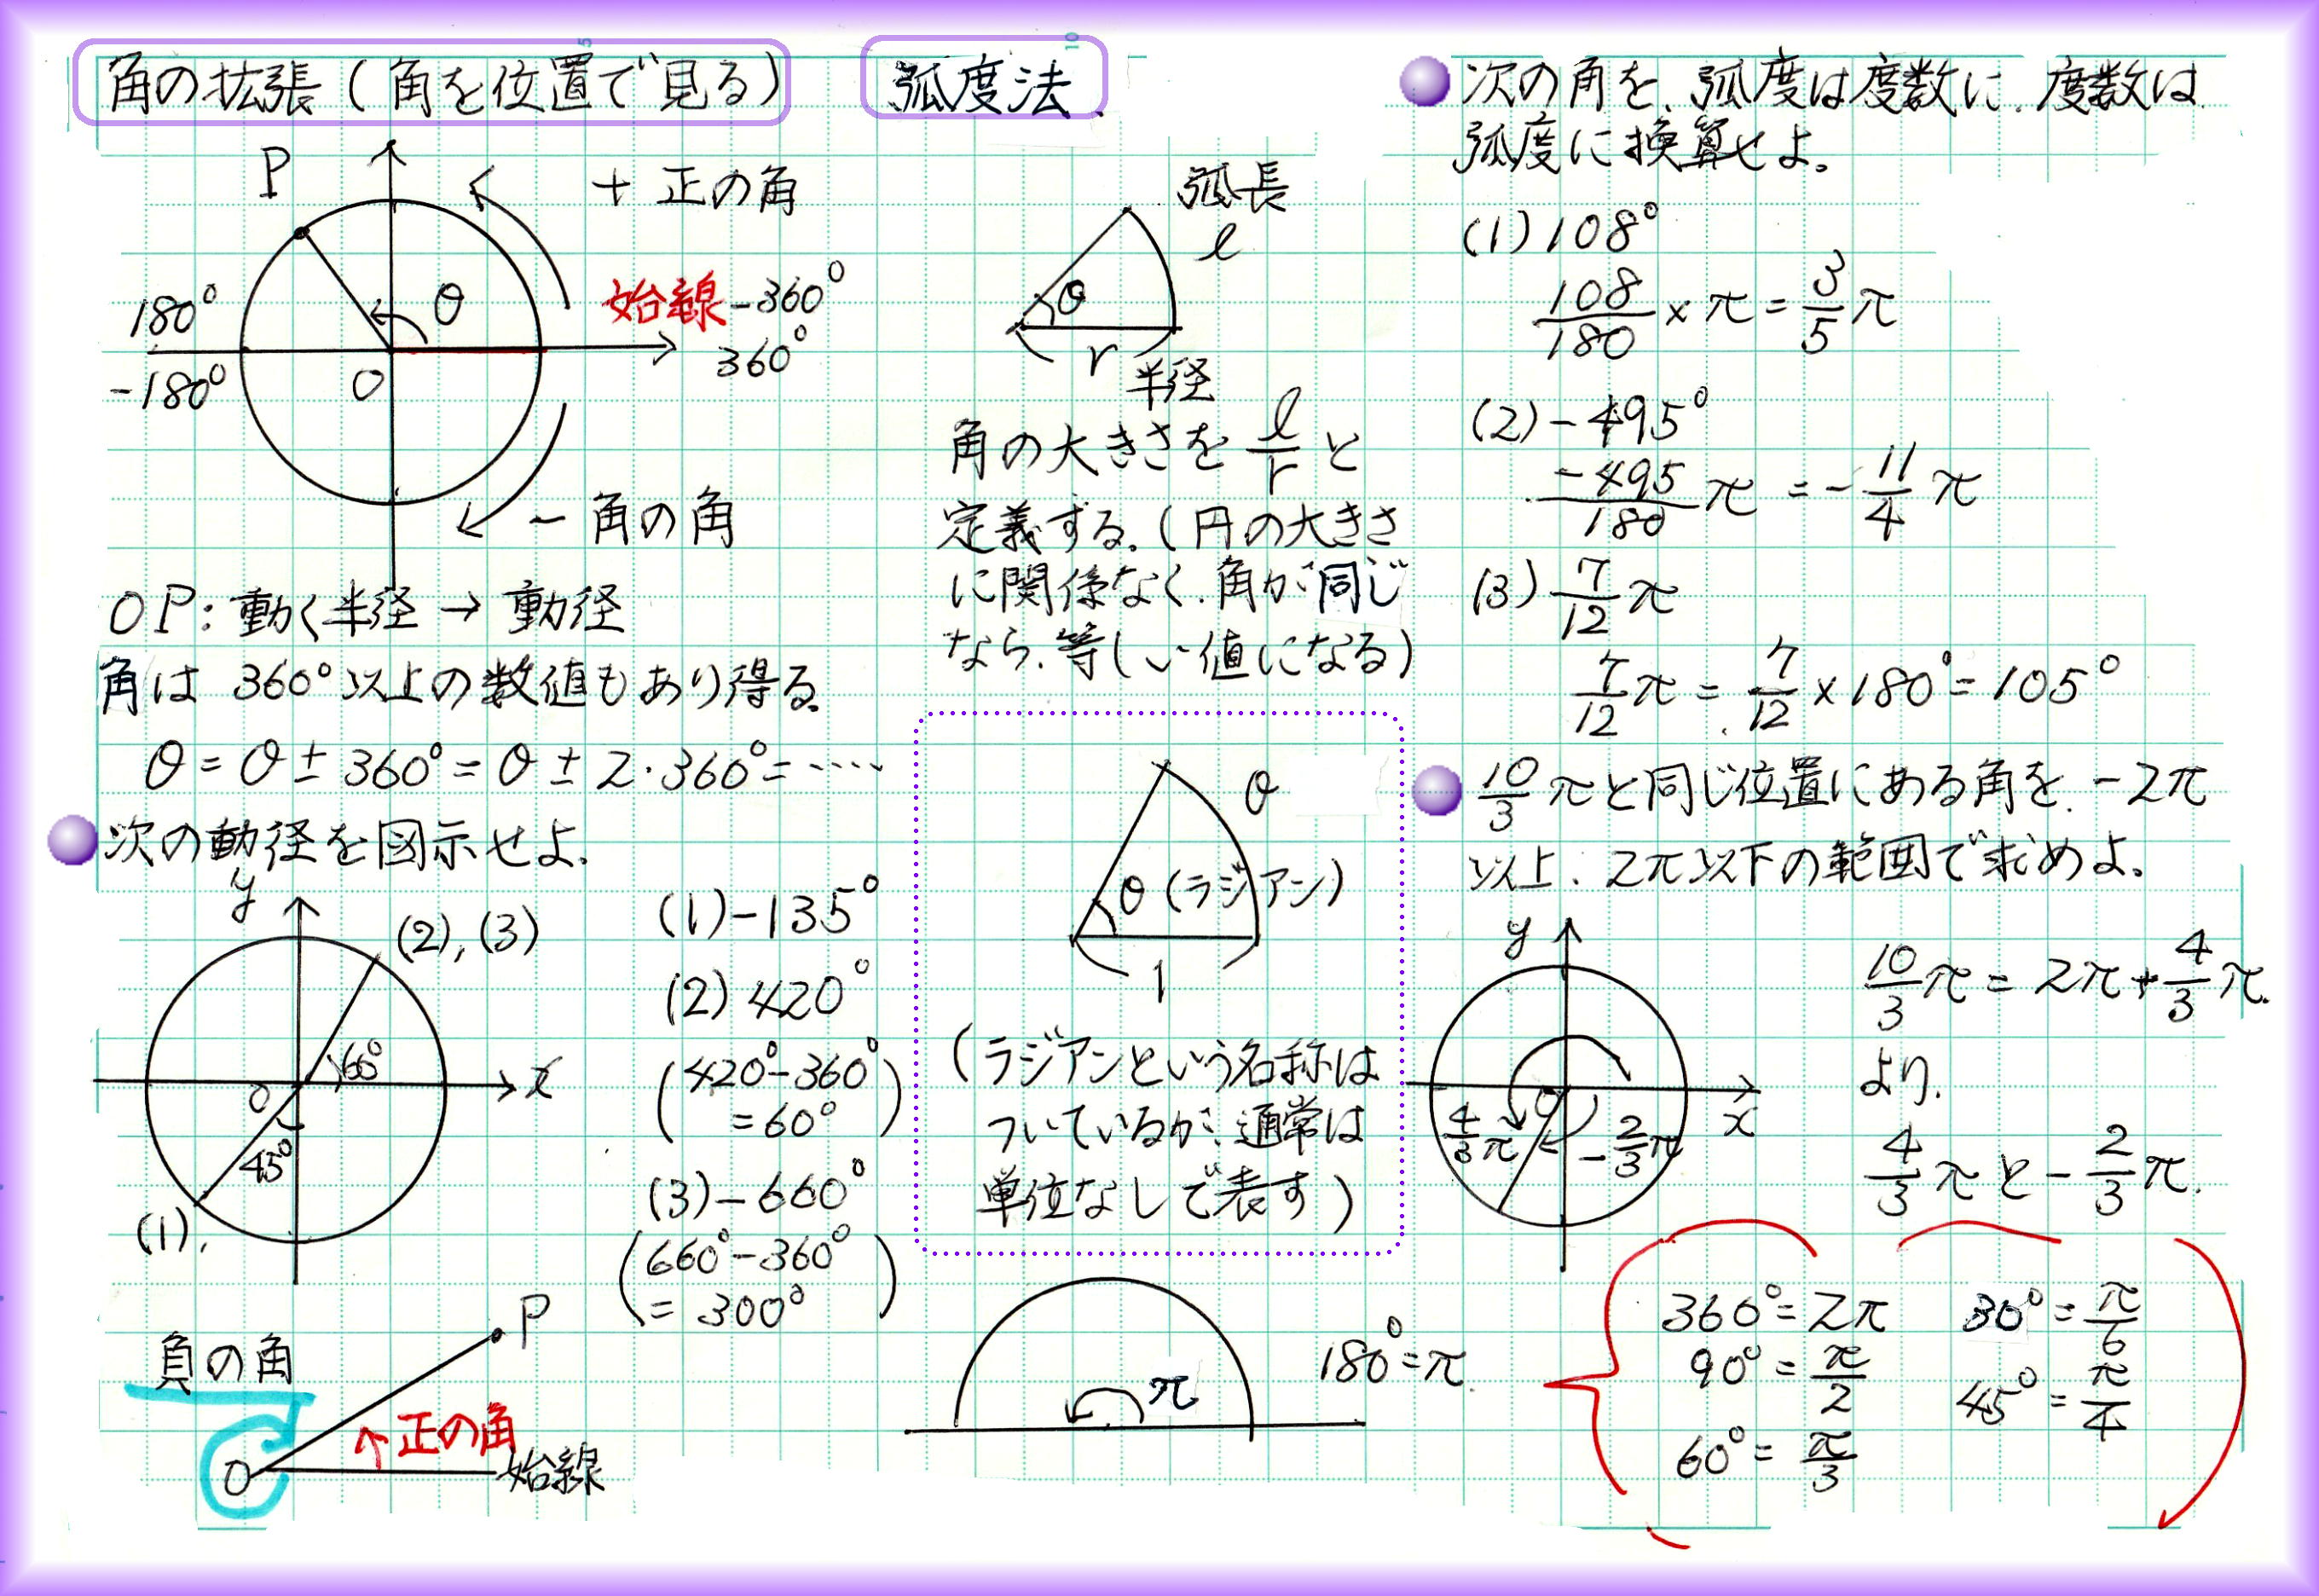 角の拡張(角を位置で見る)
P
+ 正の角
180°
-180°
θ
O
始線
-360°
360°
- 角の角
OP:動く半径→動径
角は 360°以上の数値もあり得る。
θ=θ±360°=θ±2・360°=‥‥
次の動径を図示せよ。
y
(2),(3)
60°
x
O
45°
(1).
(1)-135°
(2)420°
(420°-360°
=60°)
(3)-660°
(660°-360°
=300°)
負の角
P
正の角
O
始線
弧度法
弧長
l
θ
r
半径
角の大きさを l/r と
定義する。(円の大きさ
に関係なく、角が同じ
なら、等しい値になる)
θ
θ(ラジアン)
1
(ラジアンという名称は
ついているが、通常は
単位なしで表す)
π
180°=π.
次の角を、弧度は度数に、度数は
弧度に換算せよ。
(1)108°
108/180×π=3/5π
(2)-495°
-495/180π=-11/4π
(3)7/12π
7/12π=7/12×180°=105°
10/3πと同じ位置にある角を、-2π
以上、2π以下の範囲で求めよ。
y
O
x
4/3π
-2/3π
10/3π=2π+4/3π.
より、
4/3πと-2/3π.
360°=2π
90°=π/2
60°=π/3
30°=π/6
45°=π/4